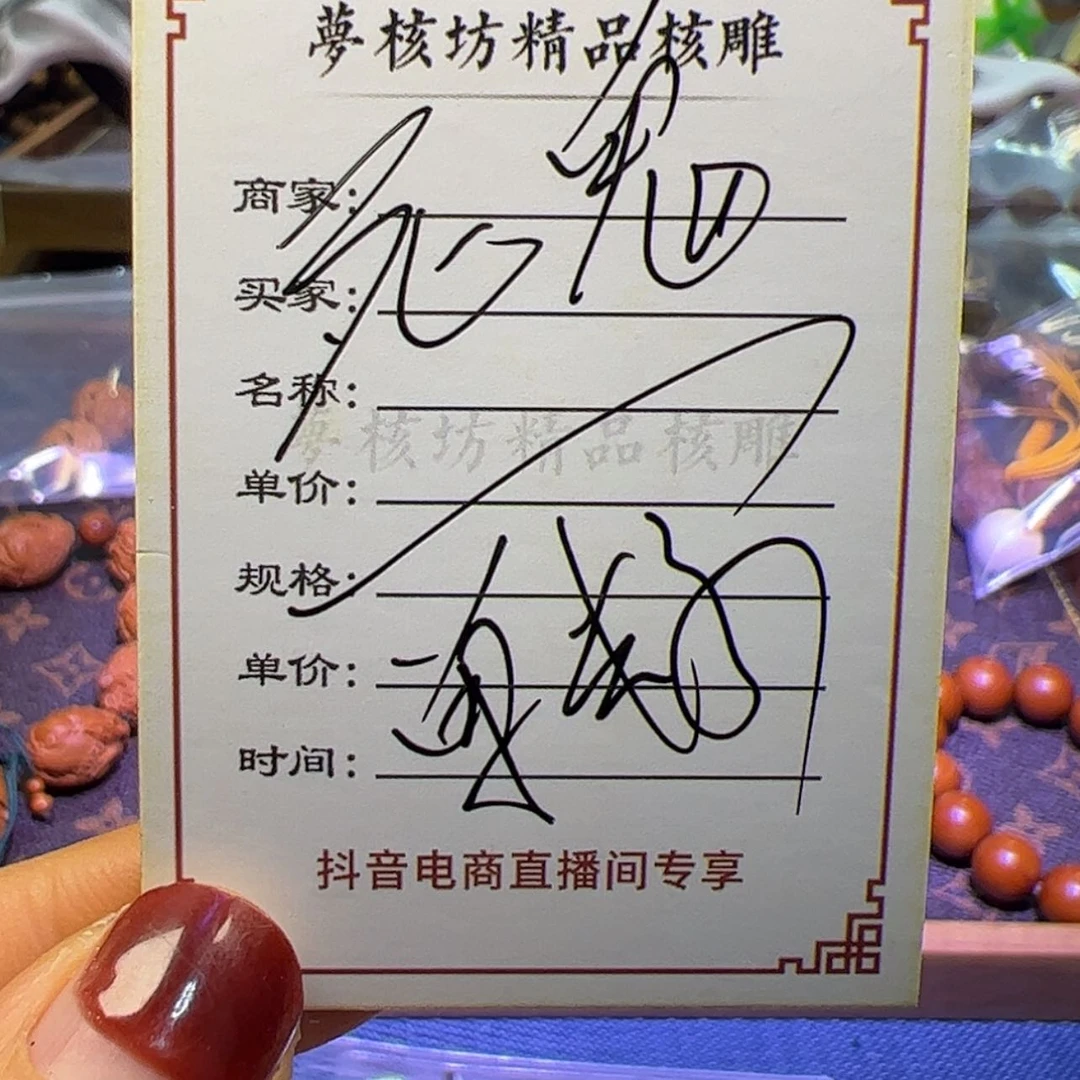 夢核坊精品核雕
商家：
买家：
名称：
夢核坊精品核雕
单价：
规格：
单价：
时间：
抖音电商直播间专享